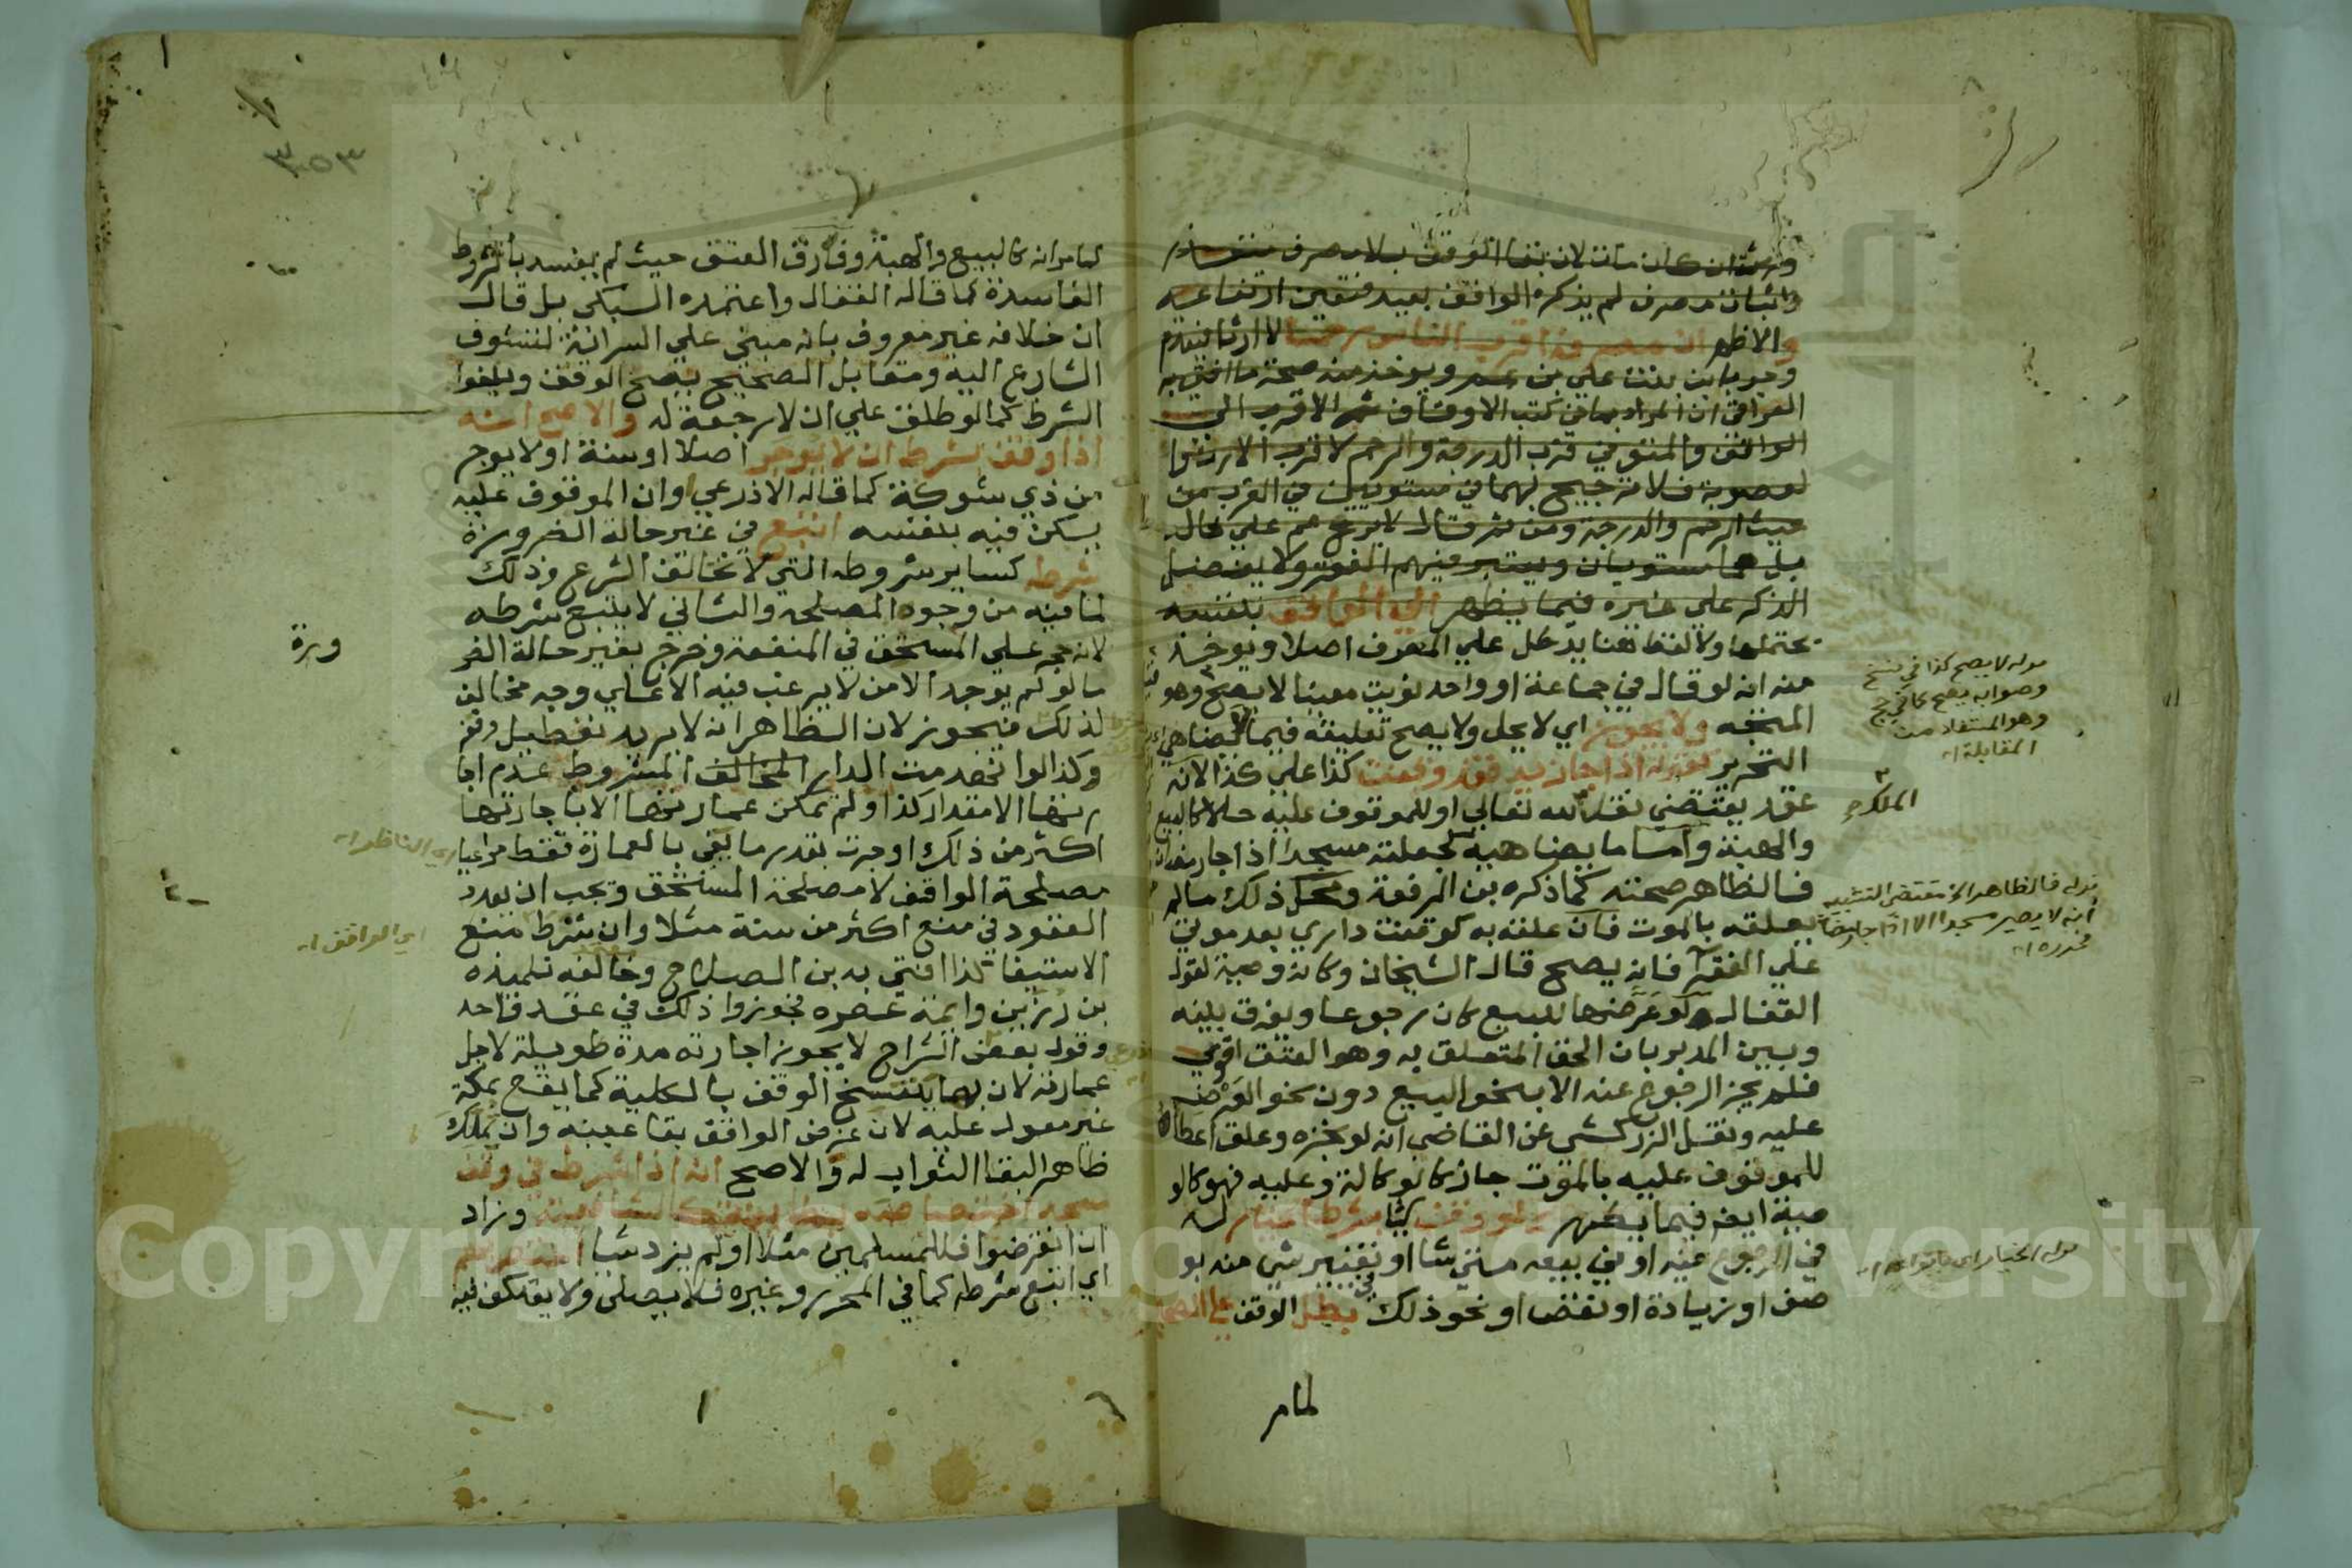 وثبت ان كان مات لان بقا الوقف بلا مصرف متعذر
واثبات مصرف لم يذكره الواقف بعيد فتعين ارتفاعه
والاظهر ان مصرفه اقرب الناس رحما لا ارثا فيقدم
وجوبا بن بنت علي بن عم ويوخذ منه صحة ما افتى به
العراقي ان المراد بما في كتب الاوقاف ثم الاقرب الى
الواقف والمتوفي قرب الدرجة والرحم لا قرب الارث وا
لعصوبة فلا ترجيح بهما في مستويين في القرب من
حيث الرحم والدرجة ومن ثم قال لا يرجح عم على خال
بل هما مستويان ويعتبر فيهم الفقر ولا يفضل
الذكر على غيره فيما يظهر الى الواقف بنفسه
يحتملها ولا لفظ هنا يدل علي المصرف اصلا ويوخذ
منه انه لو قال في جماعة او واحد نويت معينا لا يصح وهو
المتجه ولا يجوز اي لا يحل ولا يصح تعليقه فيما لا يضاهي
التحرير كقوله اذا جاز زيد فقد وقفت كذا علي كذا لانه
عقد يقتضي نقل لله تعالى او للموقوف عليه حالا كالبيع
والهبة وامسا ما يضاهيه كجعلته مسجدا اذا جا رمضان
فالظاهر صحته كما ذكره بن الرفعة ومحل ذلك مالم
يعلقه بالموت فان علقه به كوقفت داري بعد موتي
علي الفقرا فانه يصح قال الشيخان وكانه وصية لقول
القفال ولو عرضها للبيع كان رجوعا ويفرق بينه
وبين المدبر بان الحق المتعلق به وهو العتق اقوى
فلم يجز الرجوع عنه الا بنحو البيع دون نحو العرض
عليه ونقل الزركشي عن القاضي انه لو نجزه وعلق اعطاه
للموقوف عليه بالموت جاز كالوكالة وعليه فهو كالو
صية ايضا فيما يظهر ولو وقف شيا بشرط الخيار له
في الرجوع عنه او في بيعه متى شا او تغيير شي منه بو
صف او زيادة او نقص او نحو ذلك بطل الوقف علي الصحيح
لما مر
قوله لا يصح كذا في نسخ
وصوابه يصح كما في حج
وهو المستفاد من
المقابلة اه
الملك ج
قوله فالظاهر الخ مقتضى التشبيه
انه لا يصير مسجدا الا اذا جا رمضان
فحرره اه
قوله الخيار اي بانواعه اه
لما مر انه كالبيع والهبة وفارق العتق حيث لم يفسد بالشروط
الفاسدة كما قاله القفال واعتمده السبكي بل قال
ان خلافه غير معروف بانه مبني علي السراية لتشوف
الشارع اليه ومقابل الصحيح يصح الوقف ويلغوا
الشرط كما لو طلق علي ان لا رجعة له والاصح انه
اذا وقف بشرط ان لا يوجر اصلا او سنة او لا يوجر
من ذي شوكة كما قاله الاذرعي اوان الموقوف عليه
يسكن فيه بنفسه اتبع في غير حالة الضرورة
شرطه كساير شروطه التي لا تخالف الشرع وذلك
لما فيه من وجوه المصلحة والثاني لا يتبع شرطه
لانه حجر علي المستحق في المنفعة وخرج بغير حالة الضر
ورة
ما لو لم يوجد الا من لا يرغب فيه الا علي وجه مخالف
لذلك فيجوز لان الظاهر انه لا يريد تعطيل وقفه
وكذا لو انهدمت الدار المخالف المشروط عدم اجا
رتها الا مقدار كذا ولم تمكن عمارتها الا باجارتها
اكثر من ذلك اوجرت بقدر ما يفي بالعمارة فقط مراعيا
اي الناظر اه
مصلحة الواقف لا مصلحة المستحق ويجب ان يعدد
العقود في منع اكثر من سنة مثلا وان شرط منع
اي الواقف اه
الاستيفا كذا افتي به بن الصلاح وخالفه تلميذه
بن رزين وايمة عصره فجوزوا ذلك في عقد واحد
وقول بعض الشراح لا يجوز اجارته مدة طويلة لاجل
عمارته لان بها ينفسخ الوقف بالكلية كما يقع بمكة
غير معول عليه لان غرض الواقف بقا عينه وان تملك
ظاهر البقا الثواب له والاصح انه اذا شرط في وقف
مسجد اختصاصه بطايفة كالشافعية وزاد
ان انقرضوا فللمسلمين مثلا او لم يزد شيا اختص بهم
اي اتبع شرطه كما في المحرر وغيره فلا يصلي ولا يعتكف فيه
٣٥٣
Copyright © King Saud University